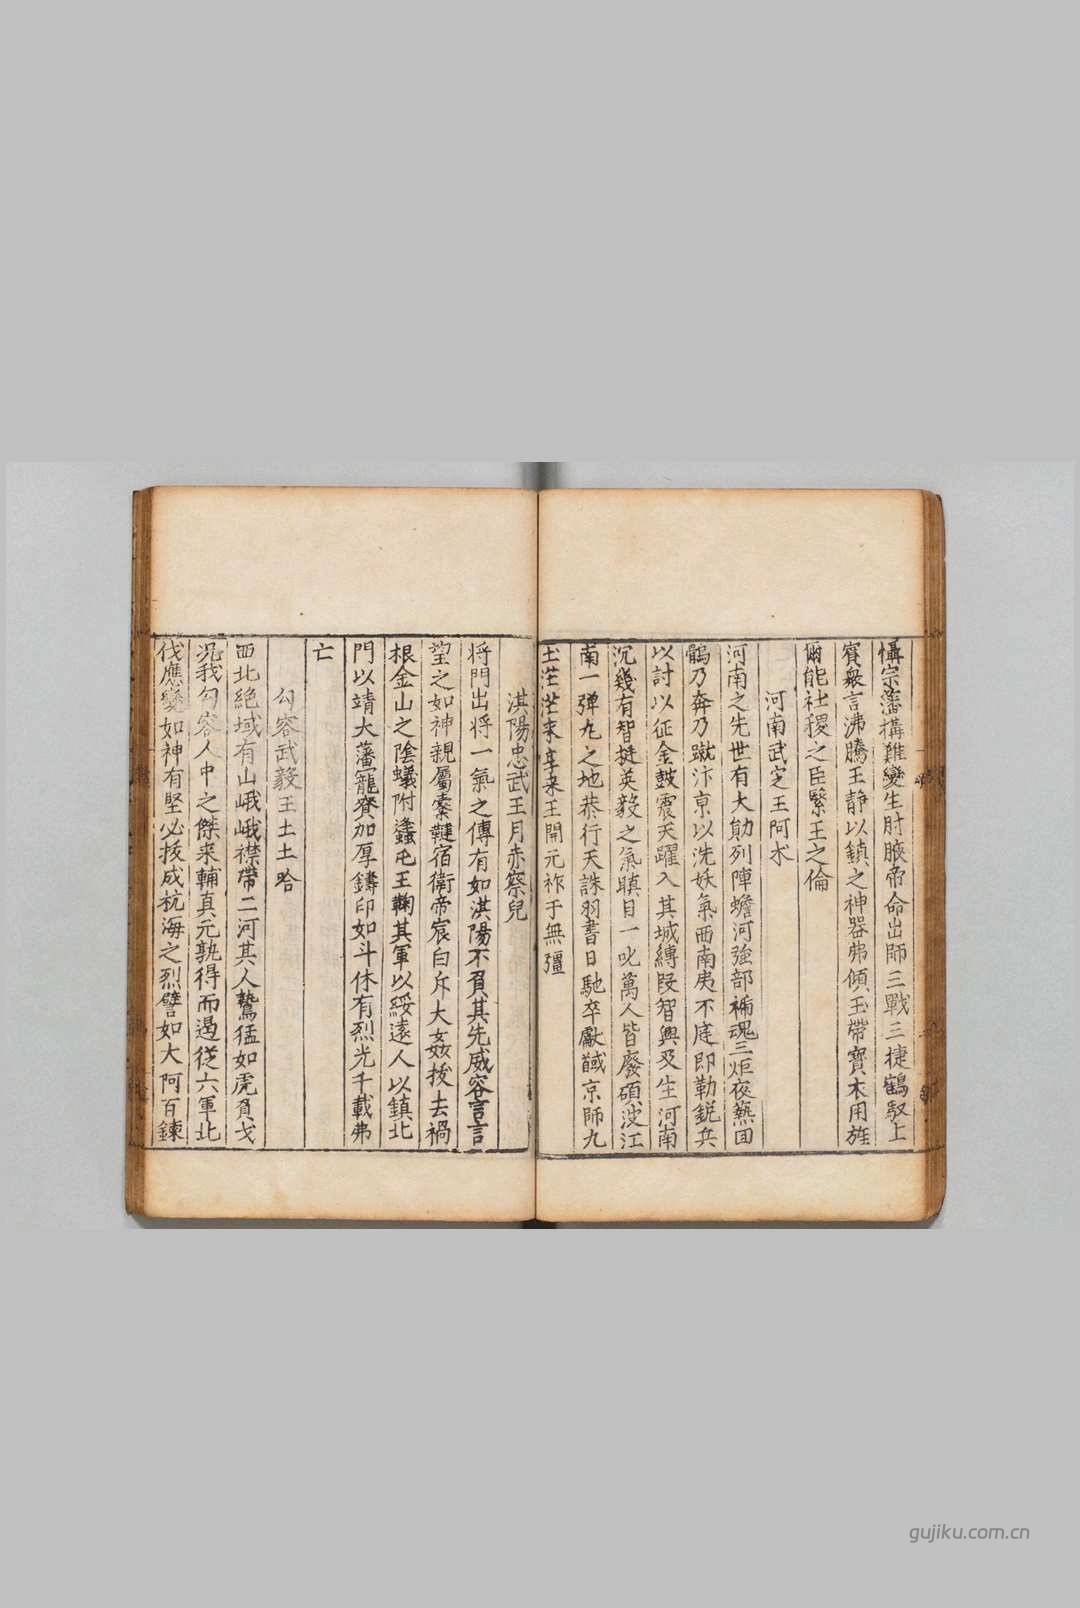 懾宗藩構難變生肘腋帝命出師三戰三捷鶴馭上
賓衆言沸騰王靜以鎮之神器弗傾玉帶寶木用旌
爾能社稷之臣緊王之倫
河南武定王阿朮
河南之先世有大勛列陣蟾河強部褫魂三炬夜爇回
鶻乃奔乃蹴汴京以洗妖氣西南夷不庭即勒銳兵
以討以征金鼓震天躍入其城縛段智興及生河南
沉幾有智挺英毅之氣瞋目一叱萬人皆廢碩波江
南一彈丸之地恭行天誅羽書日馳卒獻馘京師九
土茫茫來享來王開元祚于無彊
淇陽忠武王月赤察兒
将門出将一氣之傳有如淇陽不負其先威容言言
望之如神親屬櫜鞬宿衛帝宸白斥大姦拔去禍
根金山之陰蟻附蠭屯王鞠其軍以綏遠人以鎮北
門以靖大藩寵賚加厚鑄印如斗休有烈光千載弗
亡
勾容武毅王土土哈
西北絶域有山峨峨襟帶二河其人驇猛如虎負戈
况我勾容人中之傑来輔真元孰得而遏從六軍北
伐應變如神有堅必拔成杭海之烈譬如大阿百鍊
gujiku.com.cn